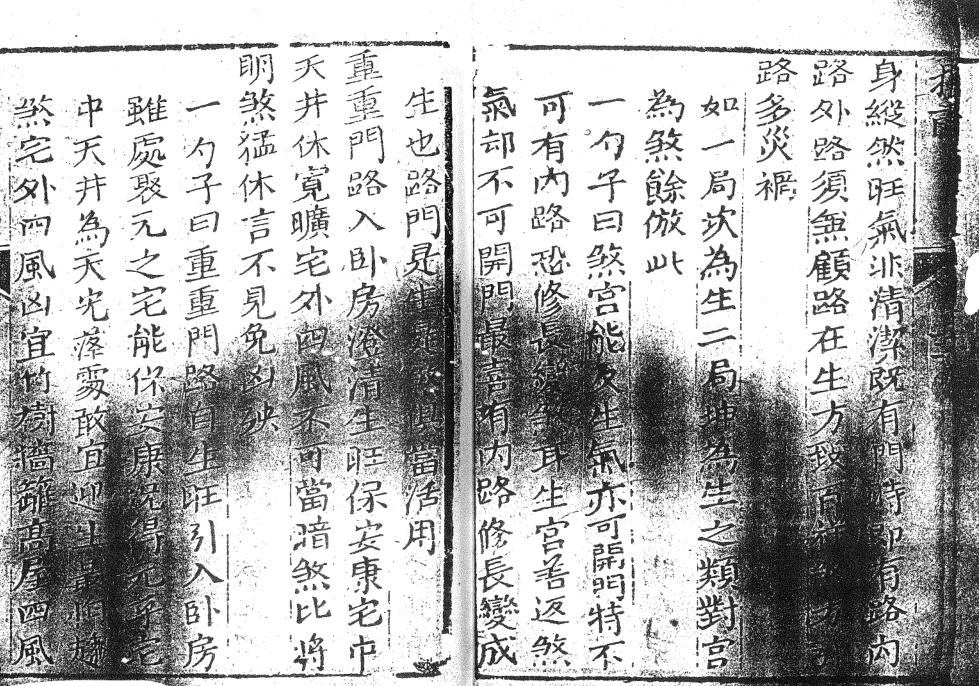 身縱然旺氣非清潔既有門時卽有路內
路外路須無顧路在生方致百祥
路多災禍
如一局坎為生二局坤為生之類對宮
為煞餘倣此
一勺子曰煞宮能返生氣亦可開門特不
可有內路恐修長變煞耳生宮善返煞
氣却不可開門最喜有內路修長變成
生也路門是生是當活用
重重門路入臥房澄清生旺保安康宅中
天井休寬曠宅外凹風不可當暗煞比將
明煞猛休言不見免凶殃
一勺子曰重重門路自生旺引入臥房
雖處聚元之宅能保安康況得元乎宅
中天井為天光落處敢宜迎生
煞宅外凹風凶宜竹樹牆籬高屋凹風